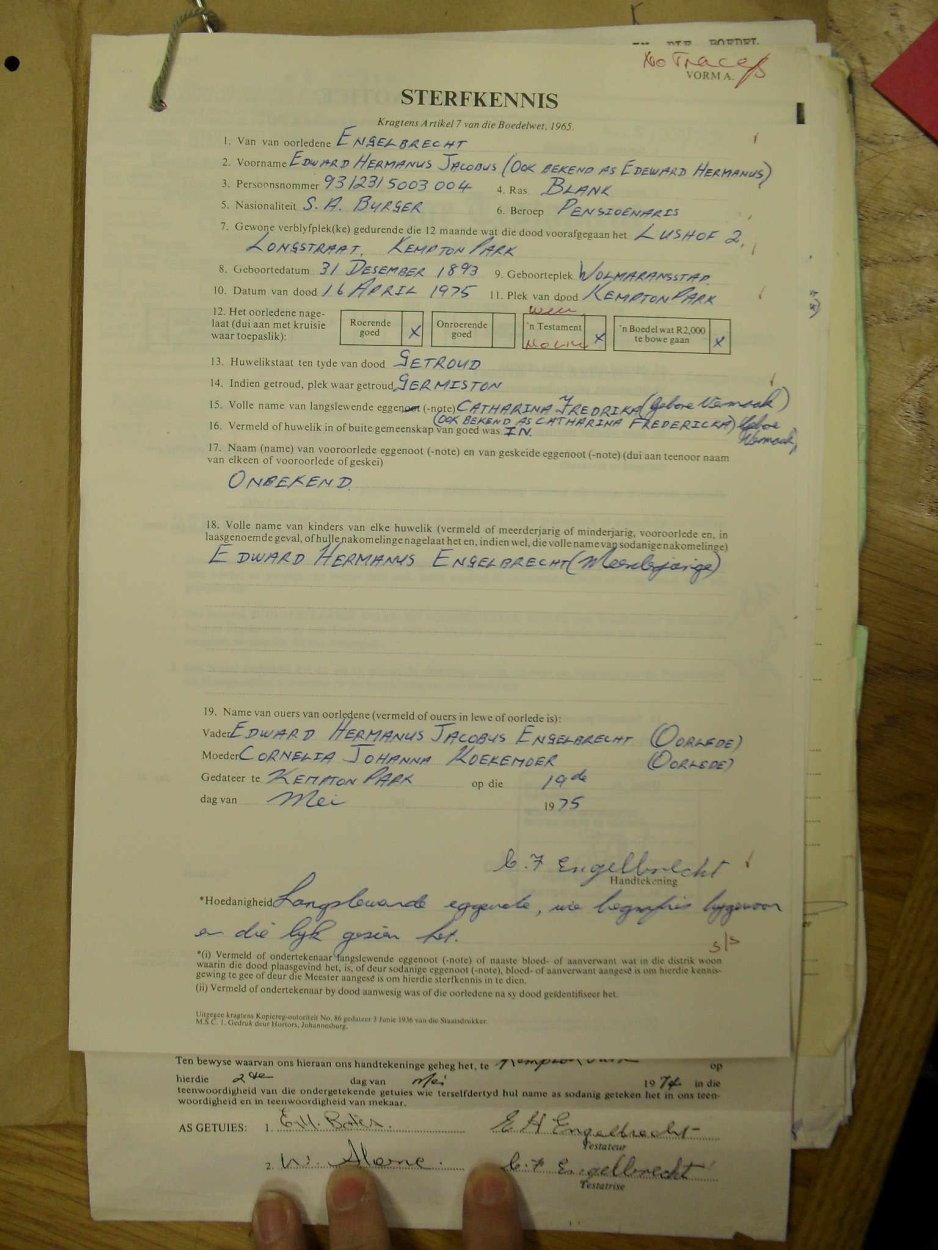 IN DIE BOEDEL
No Traces
VORM A.
STERFKENNIS
Kragtens Artikel 7 van die Boedelwet, 1965.
1. Van van oorledene ENGELBRECHT
2. Voorname EDWARD HERMANUS JACOBUS (OOK BEKEND AS EDEWARD HERMANUS)
3. Persoonsnommer 931231 5003 004 4. Ras BLANK
5. Nasionaliteit S.A. BURGER 6. Beroep PENSIOENARIS
7. Gewone verblyfplek(ke) gedurende die 12 maande wat die dood voorafgegaan het LUSHOF 2,
LONGSTRAAT, KEMPTON PARK
8. Geboortedatum 31 DESEMBER 1893 9. Geboorteplek WOLMARANSSTAD
10. Datum van dood 16 APRIL 1975 11. Plek van dood KEMPTON PARK
12. Het oorledene nage-
laat (dui aan met kruisie
waar toepaslik):
Roerende
goed X
Onroerende
goed
'n Testament X
'n Boedel wat R2,000
te bowe gaan X
13. Huwelikstaat ten tyde van dood GETROUD
14. Indien getroud, plek waar getroud GERMISTON
15. Volle name van langslewende eggenoot (-note) CATHARINA FREDRIKA (gebore Vermaak)
(OOK BEKEND AS CATHARINA FREDERICKA) gebore
Vermaak
16. Vermeld of huwelik in of buite gemeenskap van goed was IN.
17. Naam (name) van vooroorlede eggenoot (-note) en van geskeide eggenoot (-note) (dui aan teenoor naam
van elkeen of vooroorlede of geskei)
ONBEKEND
18. Volle name van kinders van elke huwelik (vermeld of meerderjarig of minderjarig, vooroorlede en, in
laasgenoemde geval, of hulle nakomelinge nagelaat het en, indien wel, die volle name van sodanige nakomelinge)
EDWARD HERMANUS ENGELBRECHT (Meerderjarige)
19. Name van ouers van oorledene (vermeld of ouers in lewe of oorlede is):
Vader EDWARD HERMANUS JACOBUS ENGELBRECHT (OORLEDE)
Moeder CORNELIA JOHANNA KOEKEMOER (OORLEDE)
Gedateer te KEMPTON PARK op die 19de
dag van Mei 1975
C. F Engelbrecht
Handtekening
*Hoedanigheid Langslewende eggenote, wie begrafnis bygewoon
en die lyk gesien het.
*(i) Vermeld of ondertekenaar langslewende eggenoot (-note) of naaste bloed- of aanverwant wat in die distrik woon
waarin die dood plaasgevind het, is, of deur sodanige eggenoot (-note), bloed- of aanverwant aangesê is om hierdie kennis-
gewing te gee of deur die Meester aangesê is om hierdie sterfkennis in te dien.
(ii) Vermeld of ondertekenaar by dood aanwesig was of die oorledene na sy dood geïdentifiseer het.
Uitgegee kragtens Kopiereg-outoriteit No. 86 gedateer 3 Junie 1936 van die Staatsdrukker.
M.S.C. 1. Gedruk deur Hortors, Johannesburg.
Ten bewyse waarvan ons hieraan ons handtekeninge geheg het, te Kempton Park op
hierdie 2de dag van Mei 1974 in die
teenwoordigheid van die ondergetekende getuies wie terselfdertyd hul name as sodanig geteken het in ons teen-
woordigheid en in teenwoordigheid van mekaar.
AS GETUIES: 1. E H Engelbrecht
Testateur
2. C. F Engelbrecht
Testatrise